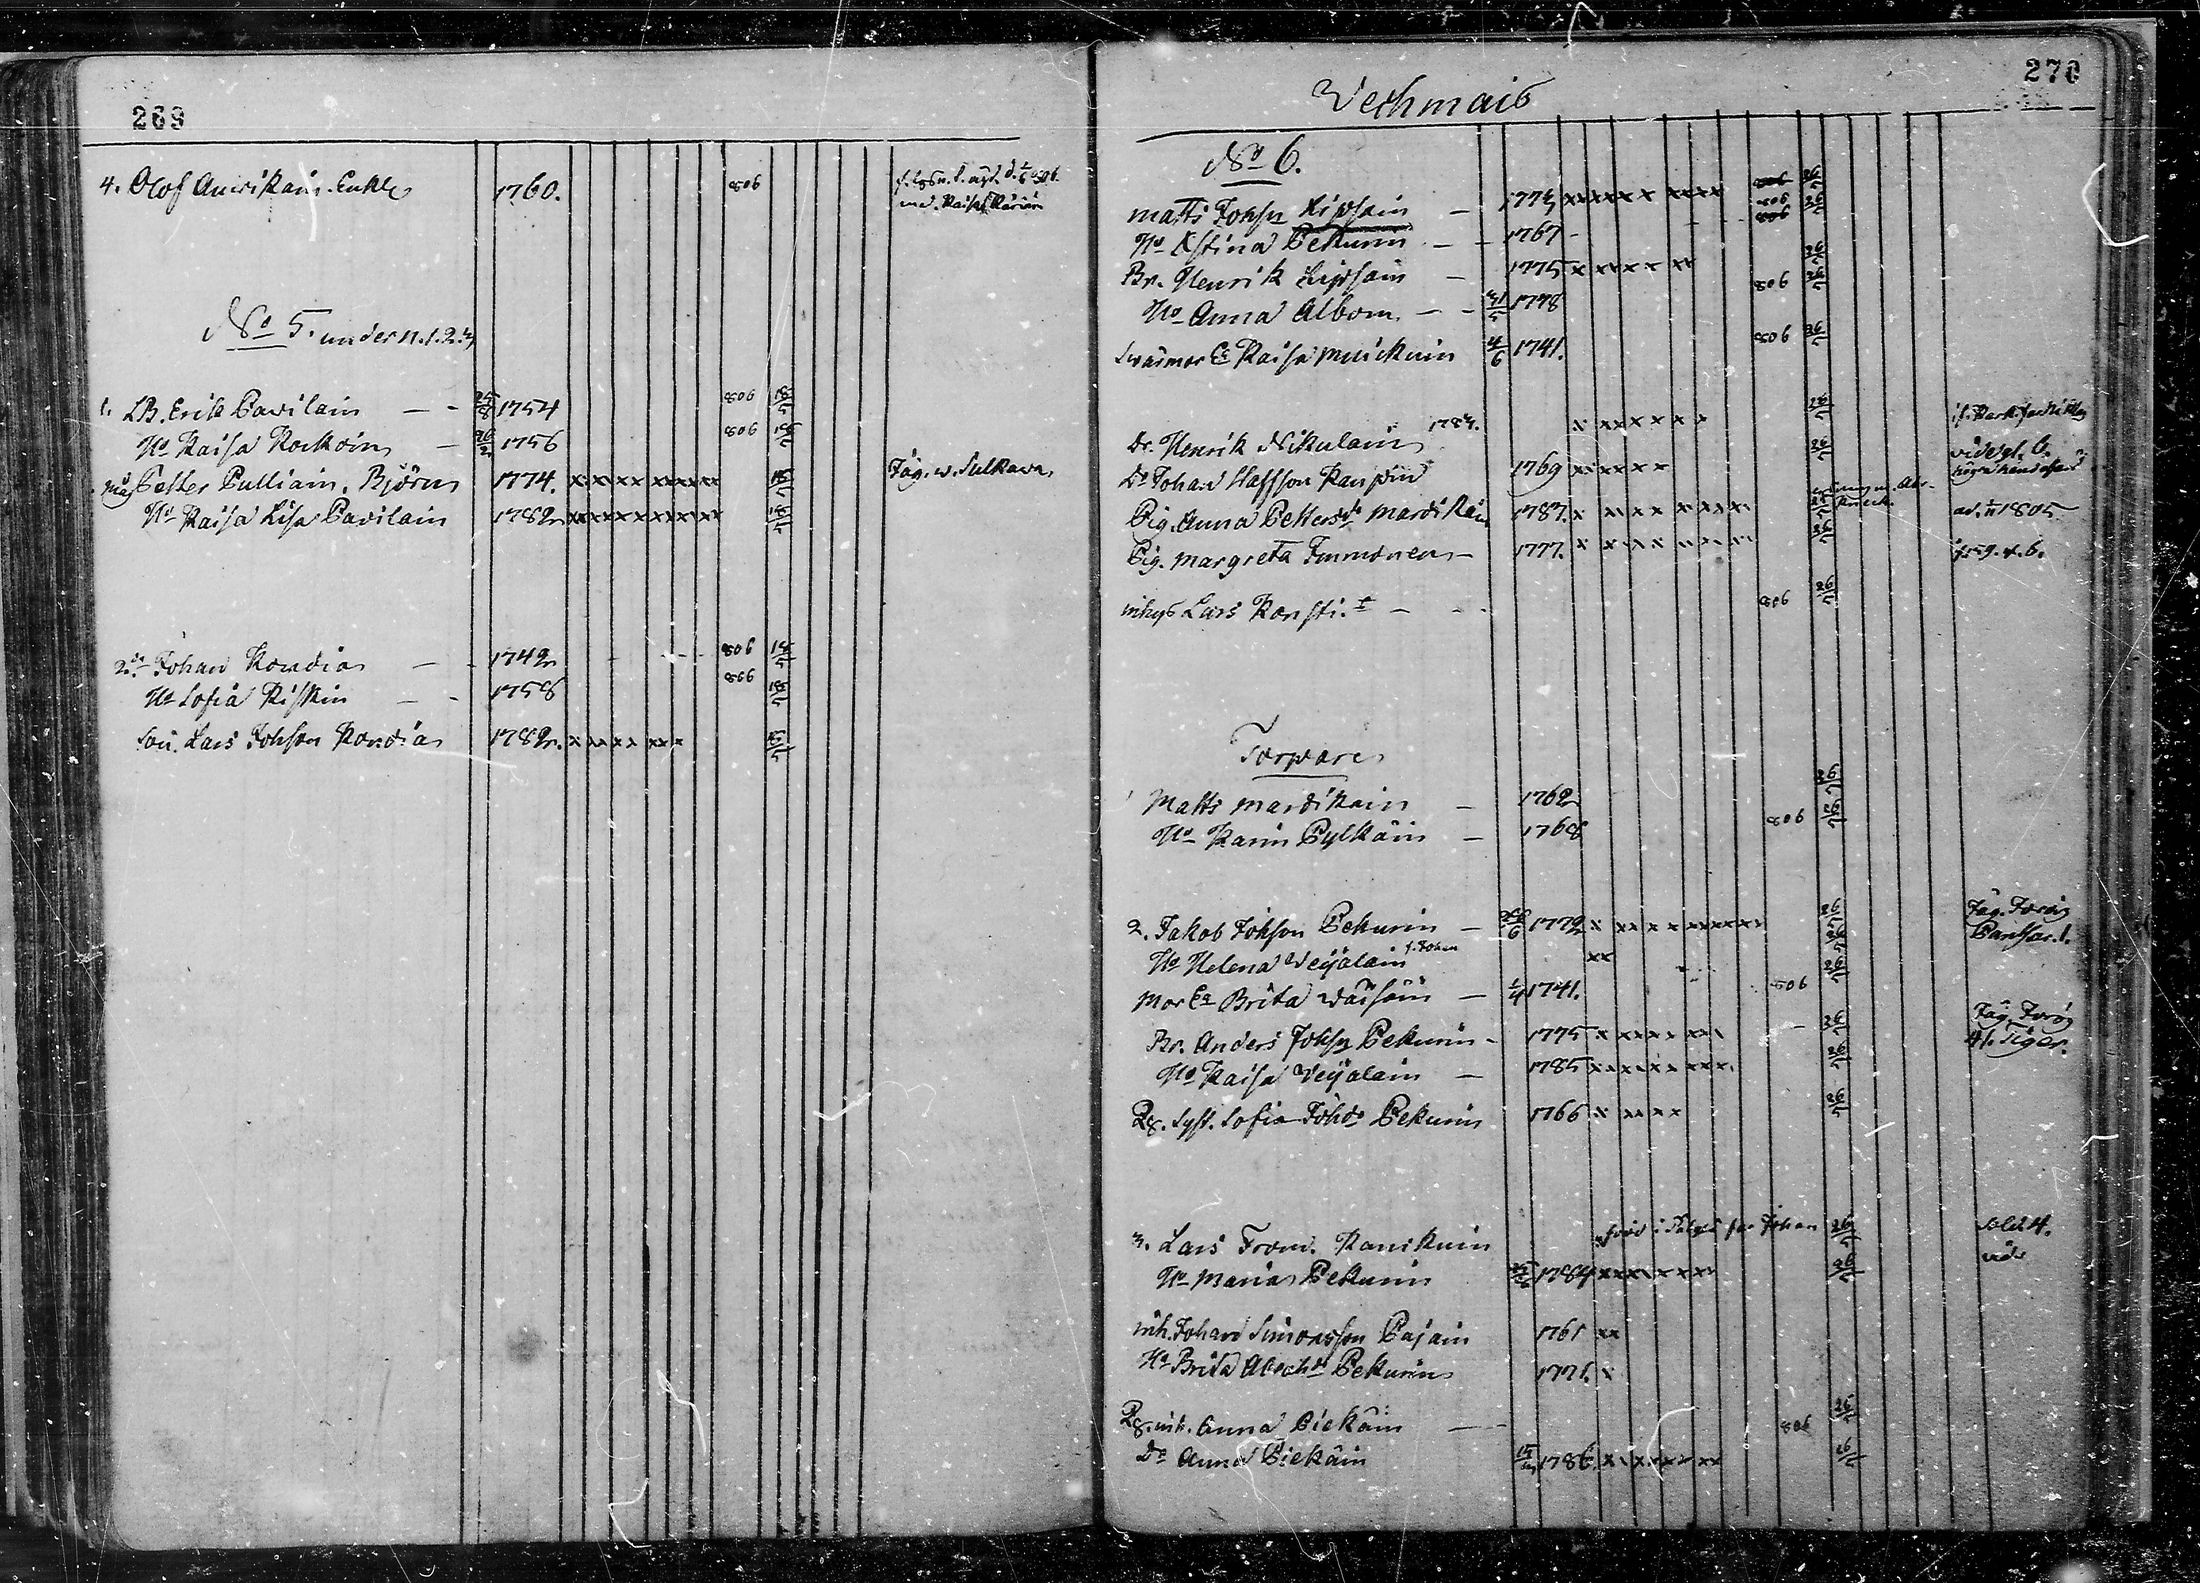 269
4. Olof Auvikain. Enkl. 1760. 806
No 5. under n. 1. 2. 3
1. LB. Erik Pavilain — - 25/8 1754 806 18/5
Hu Kaisa Kockoin — 26/2 1756 806 18/5
måg Petter Pulliain. Björn 1774. xx xx xxxxx 18/5 Jäg. w. Sulkava
Hu Kaisa Lisa Pavilain 1782 xxxxxxxxxx 18/5
2. Johan Kondia — 1742 806 18/5
Hu Sofia Kiskin — - 1758 806 18/5
Son. Lars Johson Kondia 1782. x xx x xxx
270
Vechmais
No 6.
Matts Johsn Lipsain — 1773 xxxxxx xxxx 806 26/5
Hu Kstina Pekurin — - 1767 - 806 26/5
Br. Henrik Lipsain — 1775 x xx x x xx 26/5
Hu Anna Albom — - 31/5 1778 806 26/5
Swärmor Ea Kaisa Muickuin 4/6 1741. 806 26/5
Dr. Henrik Nikulain 1783. x xx x x x x 26/5
Do Johan Staffson Kaupin 1769 xx xx x x 26/5
Pig. Anna Pettersdr Mardikain 1787. x xx x x x x x x ad. 1805
Pig. Margreta Immonen — 1777. x x xx x 26/5
inhys Lars Konsti. — - - 806 26/5
Torpare
1 Matts Mardikain — 1762 26/5
Hu Karin Pylkäin — 1768 806 26/5
2. Jakob Johson Pekurin — 26/6 1772 x xx x x xxxxxx 26/5 Jäg.
Hu Helena Veijalain xx 26/5
Mor Ea Brita Väisäin — 1/4 1741. 806 26/5
Br. Anders Johsn Pekurin - 1775 x xx x x xx x 26/5 Jäg.
Hu Kaisa Veijalain — 1785 xxxxxxxxx 26/5 41. Tiger.
Qs. Syst. Sofia Johdr Pekurin 1766 x xx x x 26/5
3. Lars From. Kanikuin Johan 26/5 Sold. 4.
Hu Maria Pekurin 1784 xxxxxxxxx 26/5
inh. Johan Simonsson Pajain 1761 xx
Hu Brita Abrahdr Pekurin 1771. x
Qs. inh. Anna Piekäin — - 806 26/5
Do Anna Piekäin 1786. x x xxxx xx 26/5